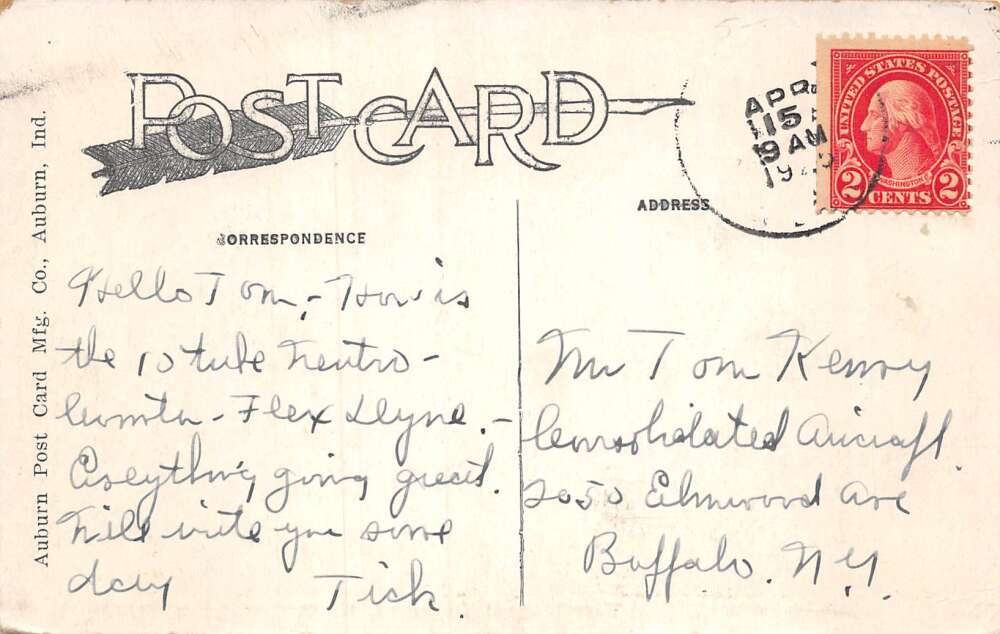 POST CARD
APR
15
9 AM
UNITED STATES POSTAGE
WASHINGTON
2 CENTS 2
ADDRESS
CORRESPONDENCE
Auburn Post Card Mfg. Co., Auburn, Ind.
Hello Tom, - How is
the 10 tube Neutro-
- Flex Dyne. -
Everything going great.
Will write you some
day Tick.
Mr Tom Kenny
Consolidated Aircraft
2050 Elmwood Ave
Buffalo. N.Y.